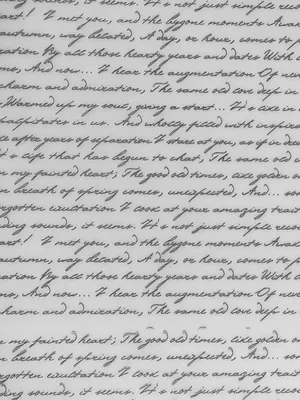 sounds, it seems. It's not just simple reco
art! I met you, and the bygone moments Awa
autumn, way belated, A day, or hour, comes to p
ration By all those hearty years and dates With
me, And now... I hear the augmentation Of ne
harm and admiration, The same old love deep in
Warmed up my soul, giving a start... It's like in
palpitates in us. And wholly filled with inspir
after years of separation I stare at you, as if in dre
It's life that has begun to chat, The same old
n my fainted heart; The good old times, like golden
n breath of spring comes, unexpected, And... so
rgotten exultation I look at your amazing trait
ding sounds, it seem. It's not just simple reco
art! I met you, and the bygone moments Awa
autumn, way belated, A day, or hour, comes to p
ration By all those hearty years and dates With
me, And now... I hear the augmentation Of ne
harm and admiration, The same old love deep in
n my fainted heart; The good old times, like golden
n breath of spring comes, unexpected, And... so
rgotten exultation I look at your amazing trait
ding sounds, it seems. It's not just simple reco